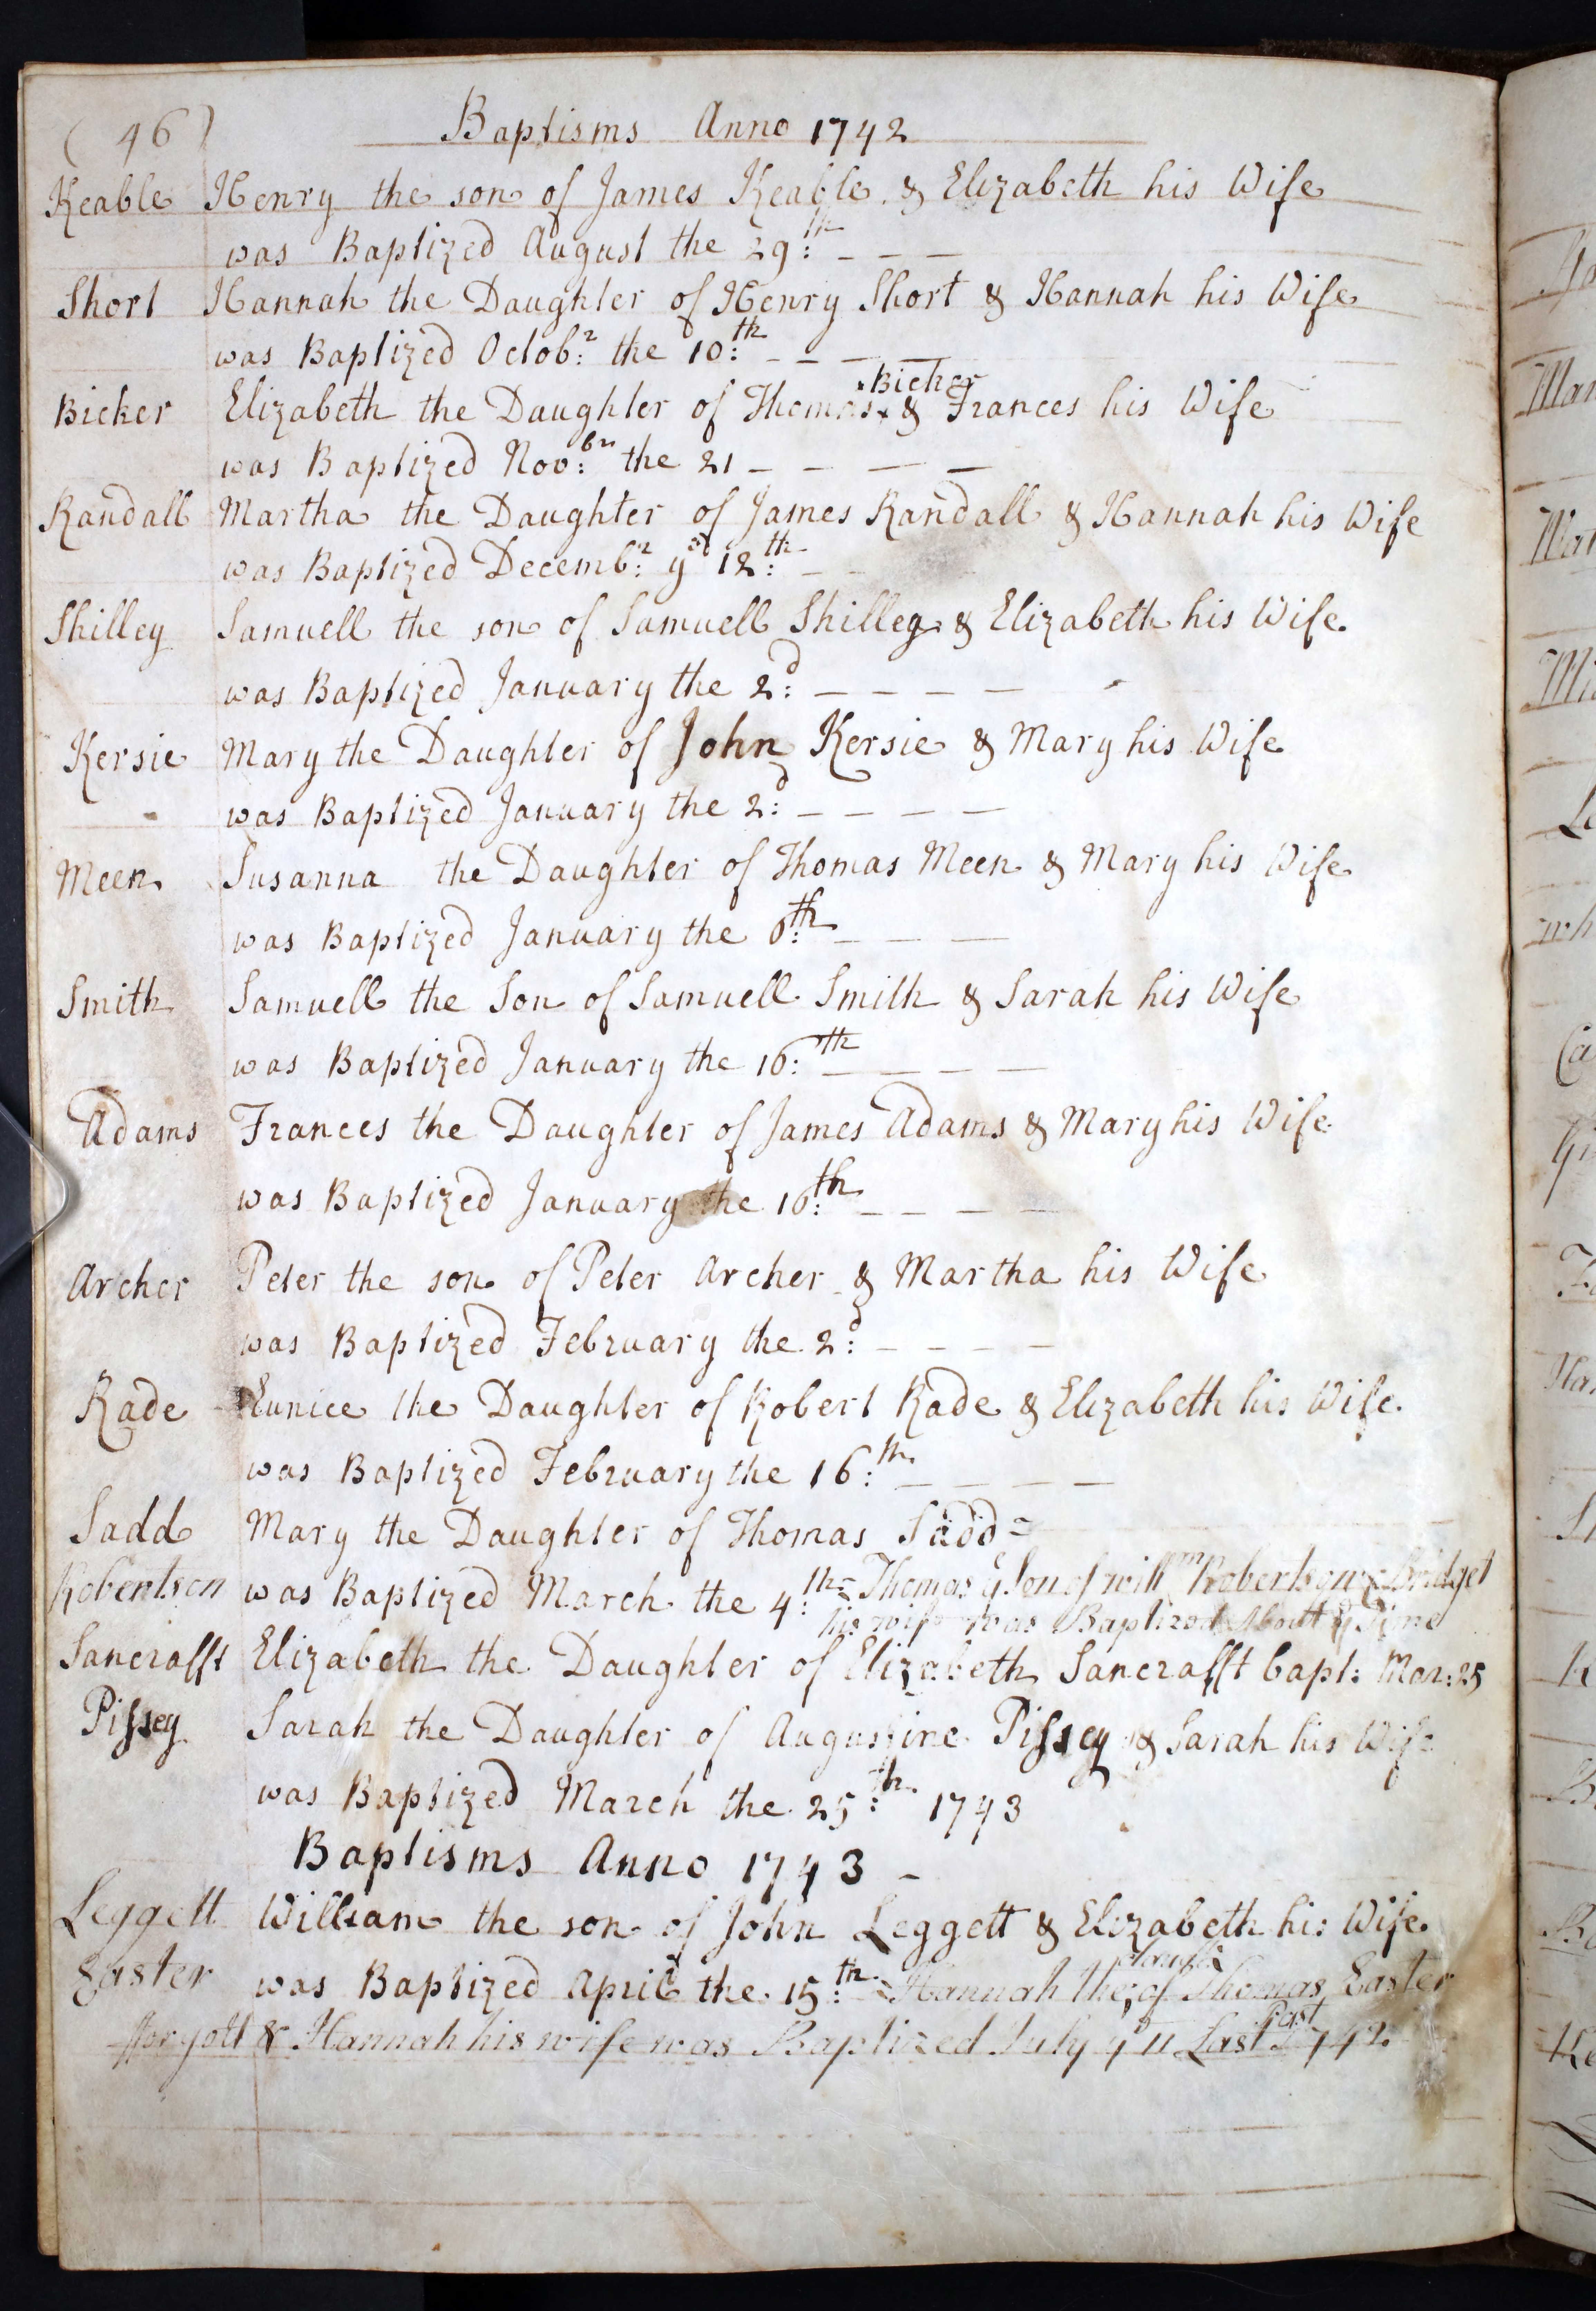 (46) Baptisms Anno 1742
Keable Henry the son of James Keable & Elizabeth his Wife
was Baptized August the 29:th
Short Hannah the Daughter of Henry Short & Hannah his Wife
was Baptized Octob:r the 10:th
Bicker
Bicker Elizabeth the Daughter of Thomas x & Frances his Wife
was Baptized Nov:br the 21
Randall Martha the Daughter of James Randall & Hannah his Wife
was Baptized Decemb:r ye 12:th
Shilley Samuell the son of Samuell Shilley & Elizabeth his Wife
was Baptized January the 2:d
Kersie Mary the Daughter of John Kersie & Mary his Wife
was Baptized January the 2:d
Meen Susanna the Daughter of Thomas Meen & Mary his Wife
was Baptized January the 6:th
Smith Samuell the Son of Samuell Smith & Sarah his Wife
was Baptized January the 16:th
Adams Frances the Daughter of James Adams & Mary his Wife
was Baptized January the 16:th
Archer Peter the son of Peter Archer & Martha his Wife
was Baptized February the 2:d
Rade Eunice the Daughter of Robert Rade & Elizabeth his Wife
was Baptized February the 16:th
Sadd Mary the Daughter of Thomas Sadd
Robertson was Baptized March the 4:th Thomas ye Son of Willm Robertson & Bridget
his wife was Baptized Aboutt ye Time
Sancrafft Elizabeth the Daughter of Elizabeth Sancrafft bapt: Mar: 25
Pissey Sarah the Daughter of Augustine Pissey & Sarah his Wife
was Baptized March the 25:th 1743
Baptisms Anno 1743
Leggett William the son of John Leggett & Elizabeth his Wife
Easter was Baptized April the 15:th Hannah the of Thomas Easter
fforgott & Hannah his wife was Baptized July ye 11 Last Past 1742